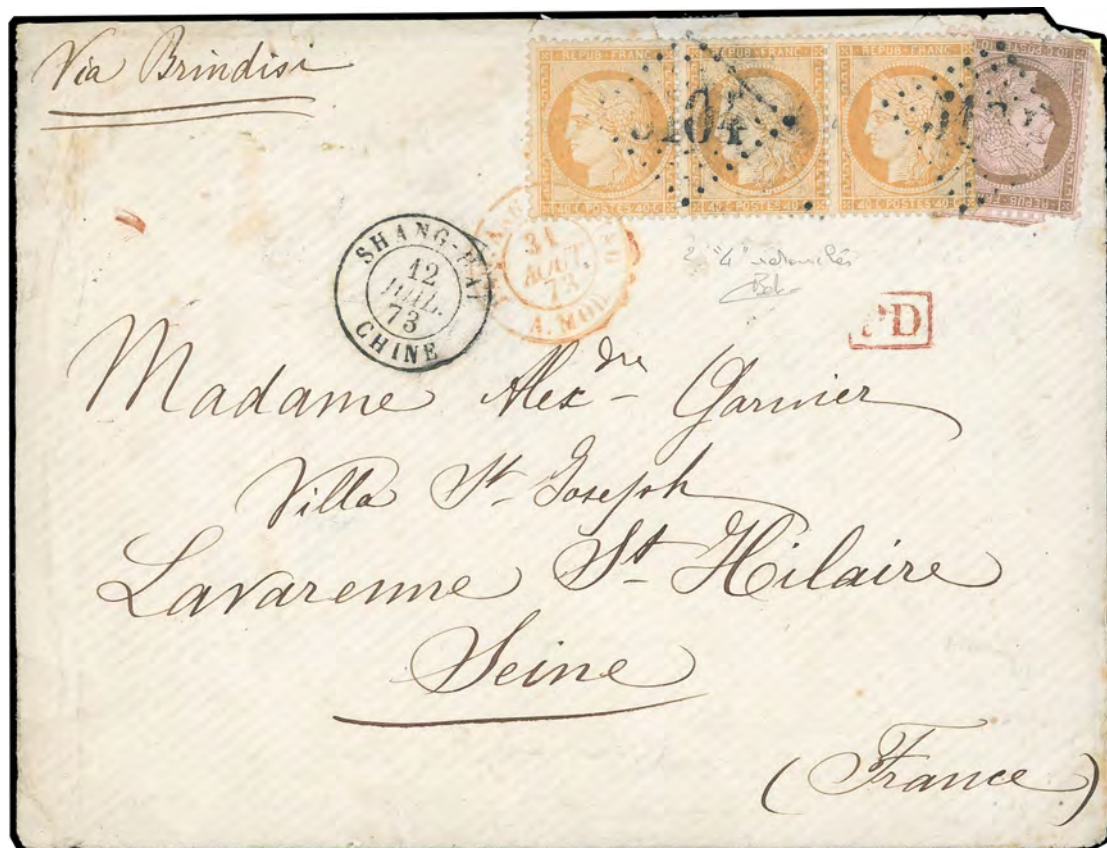 Via Brindisi
REPUB·FRANC REPUB·FRANC REPUB·FRANC
5104
40·C·POSTES·40·C 40·C·POSTES·40·C 40·C·POSTES·40·C
SHANG-HAI
12
JUIL.
73
CHINE
31
AOUT
73
A. MOD
2 "4" retouchés
PD
Madame Alexdre Garnier
Villa St Joseph
Lavarenne St Hilaire
Seine
(France)